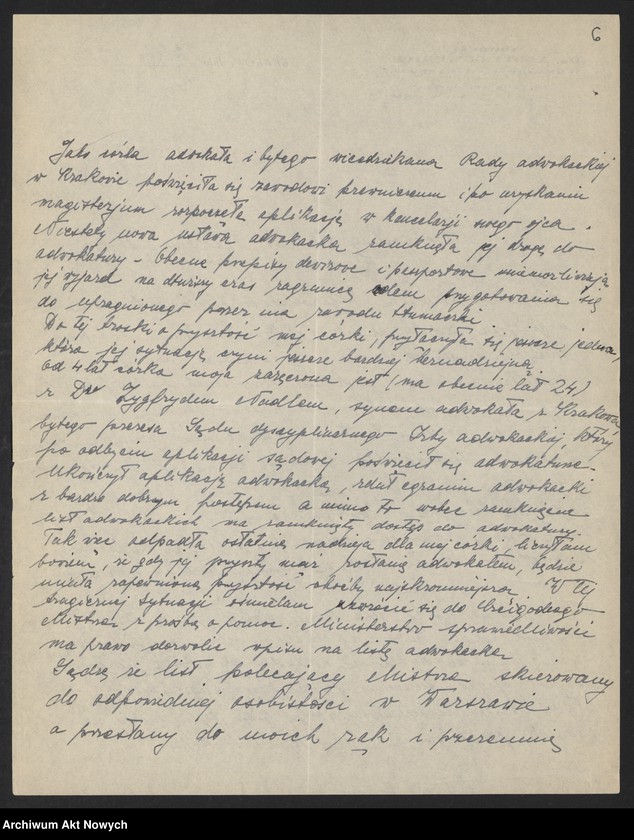 6
Jako córka adwokata i byłego wicedziekana Rady adwokackiej
w Krakowie poświęciła się zawodowi prawniczemu i po uzyskaniu
magisterjum rozpoczęła aplikację w kancelarji swego ojca.
Niestety nowa ustawa adwokacka zamknęła jej drogę do
adwokatury - Obecne przepisy dewizowe i paszportowe uniemożliwiają
jej wyjazd na dłuższy czas zagranicę celem przygotowania się
do upragnionego przez nią zawodu tłumaczki
Do tej troski o przyszłość mej córki, przyłączyła się jeszcze jedna,
która jej sytuację czyni jeszcze bardziej beznadziejną.
Od 4 lat córka moja zaręczona jest (ma obecnie lat 24)
z Drem Zygfrydem Nadlem, synem adwokata z Krakowa
byłego prezesa Sądu dyscyplinarnego Izby adwokackiej, który
po odbyciu aplikacji sądowej poświęcił się adwokaturze.
Ukończył aplikację adwokacką, zdał egzamin adwokacki
z bardzo dobrym postępem a mimo to wobec zamknięcia
list adwokackich ma zamknięty dostęp do adwokatury.
Tak więc odpadła ostatnia nadzieja dla mej córki, liczyłam
bowiem, iż gdy jej przyszły mąż zostanie adwokatem, będzie
miała zapewnioną przyszłość choćby najskromniejszą. W tej
tragicznej sytuacji ośmielam zwrócić się do Czcigodnego
Mistrza z prośbą o pomoc. Ministerstwo sprawiedliwości
ma prawo dozwolić wpisu na listę adwokacką
Sądzę że list polecający Mistrza skierowany
do odpowiedniej osobistości w Warszawie
a przesłany do moich rąk i przezemnie
Archiwum Akt Nowych